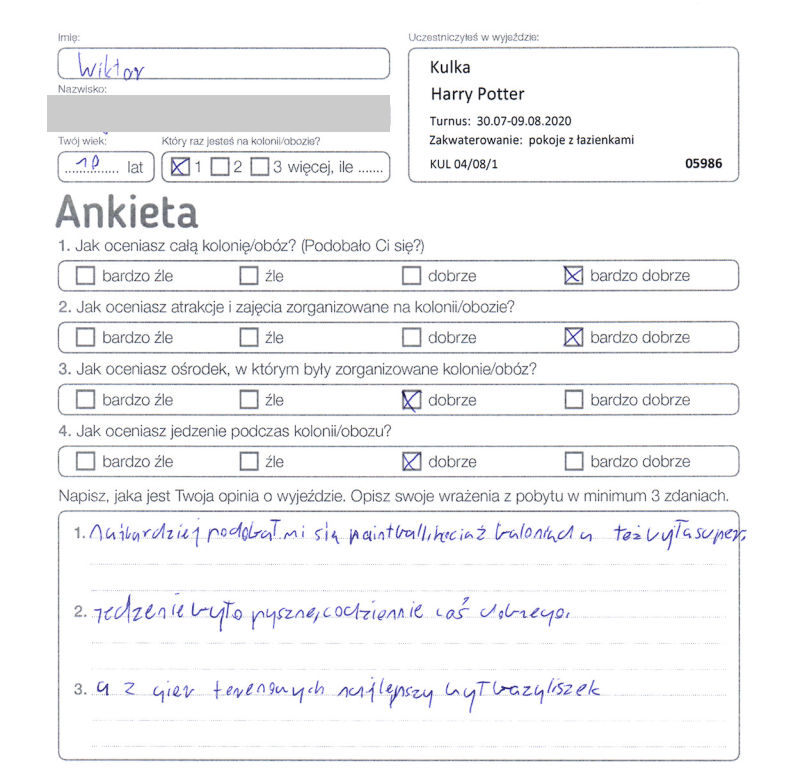 Imię:
Wiktor
Nazwisko:
Twój wiek:
Który raz jesteś na kolonii/obozie?
10 lat
1 2 3 więcej, ile .......
Uczestniczyłeś w wyjeździe:
Kulka
Harry Potter
Turnus: 30.07-09.08.2020
Zakwaterowanie: pokoje z łazienkami
KUL 04/08/1 05986
Ankieta
1. Jak oceniasz całą kolonię/obóz? (Podobało Ci się?)
bardzo źle źle dobrze bardzo dobrze
2. Jak oceniasz atrakcje i zajęcia zorganizowane na kolonii/obozie?
bardzo źle źle dobrze bardzo dobrze
3. Jak oceniasz ośrodek, w którym były zorganizowane kolonie/obóz?
bardzo źle źle dobrze bardzo dobrze
4. Jak oceniasz jedzenie podczas kolonii/obozu?
bardzo źle źle dobrze bardzo dobrze
Napisz, jaka jest Twoja opinia o wyjeździe. Opisz swoje wrażenia z pobytu w minimum 3 zdaniach.
1. Najbardziej podobał mi się paintball, też była super.
2. jedzenie było pyszne, codziennie coś dobrego.
3. a z gier terenowych najlepszy był bazyliszek